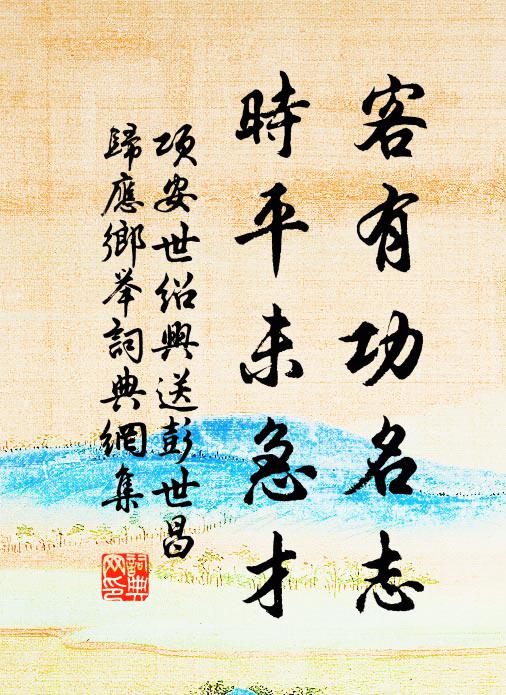 客有功名志
時平未急才
項安世紹興送彭世昌
歸應鄉举詞典網集
詞典
网印